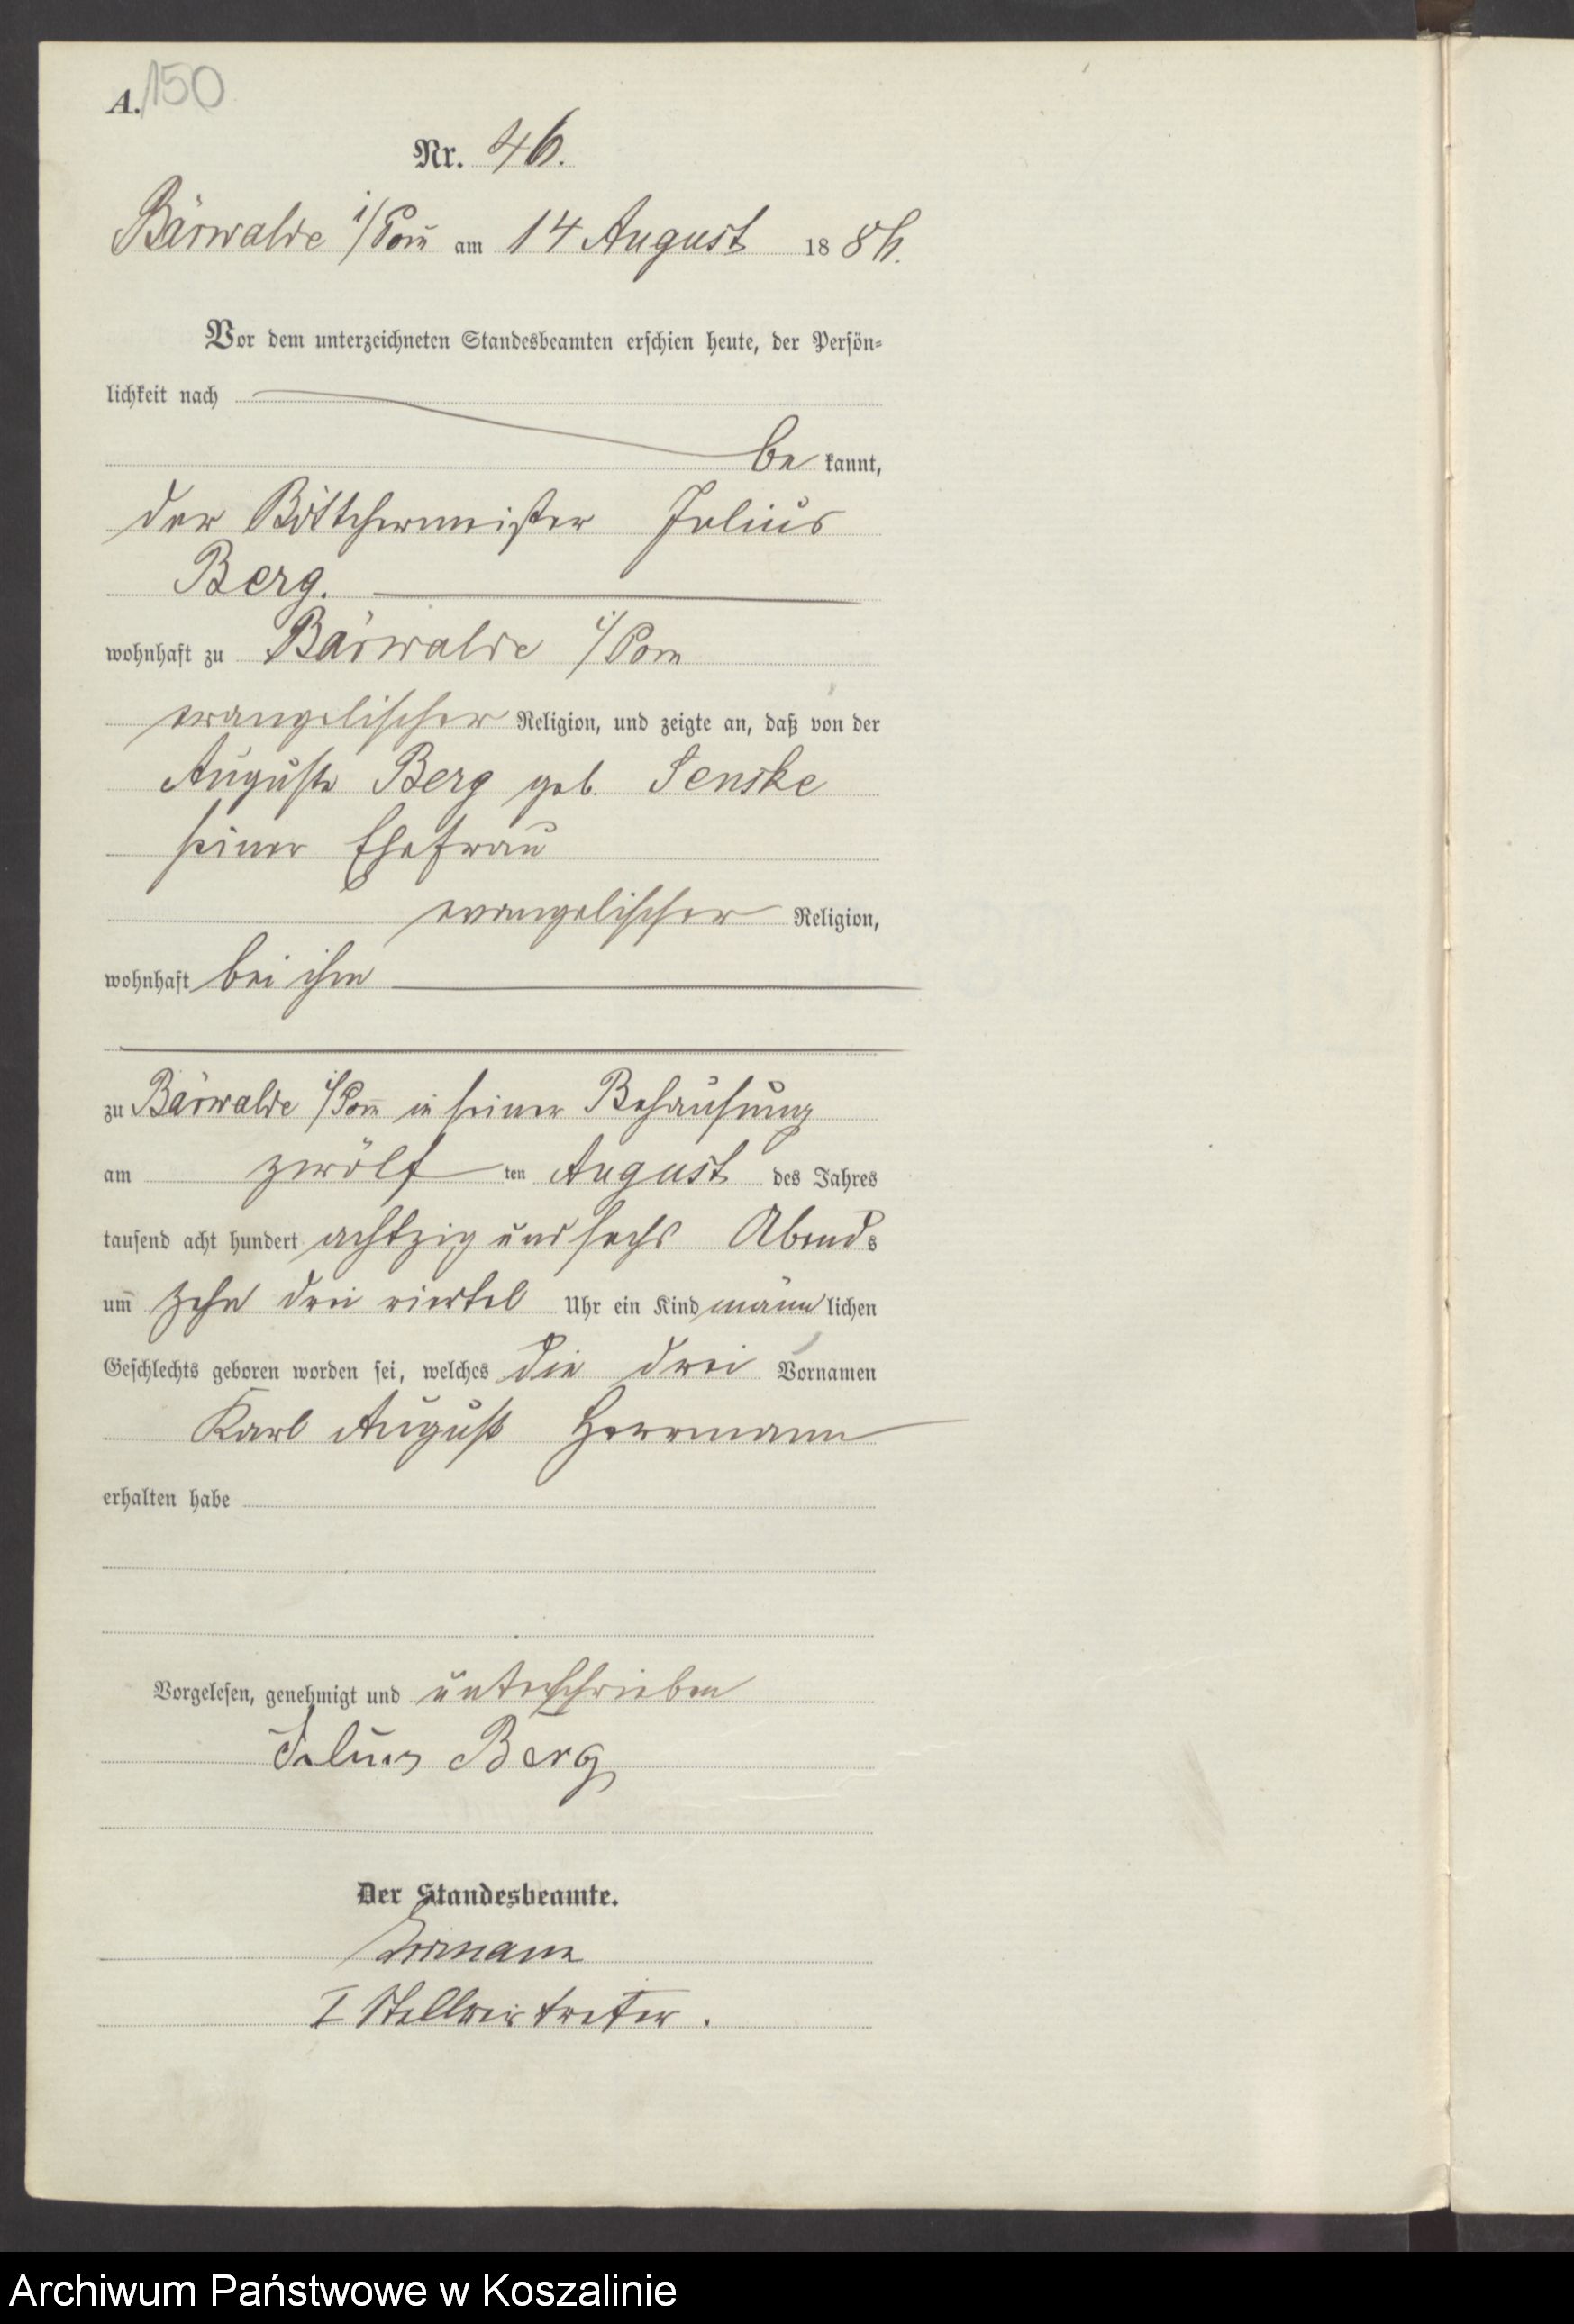 A. 150
Nr. 46.
Bärwalde i/Pom̄ am 14 August 1886.
Vor dem unterzeichneten Standesbeamten erschien heute, der Persön-
lichkeit nach
be kannt,
der Böttchermeister Julius
Berg.
wohnhaft zu Bärwalde i/Pom
evangelischer Religion, und zeigte an, daß von der
Auguste Berg geb. Senske
seiner Ehefrau
evangelischer Religion,
wohnhaft bei ihm
zu Bärwalde i/Pom̄ in seiner Behausung
am zwölf ten August des Jahres
tausend acht hundert achtzig und sechs Abends
um zehn drei viertel Uhr ein Kind männlichen
Geschlechts geboren worden sei, welches die drei Vornamen
Karl August Herrmann
erhalten habe
Vorgelesen, genehmigt und unterschrieben
Julius Berg
Der Standesbeamte.
I Stellvertreter.
Archiwum Państwowe w Koszalinie